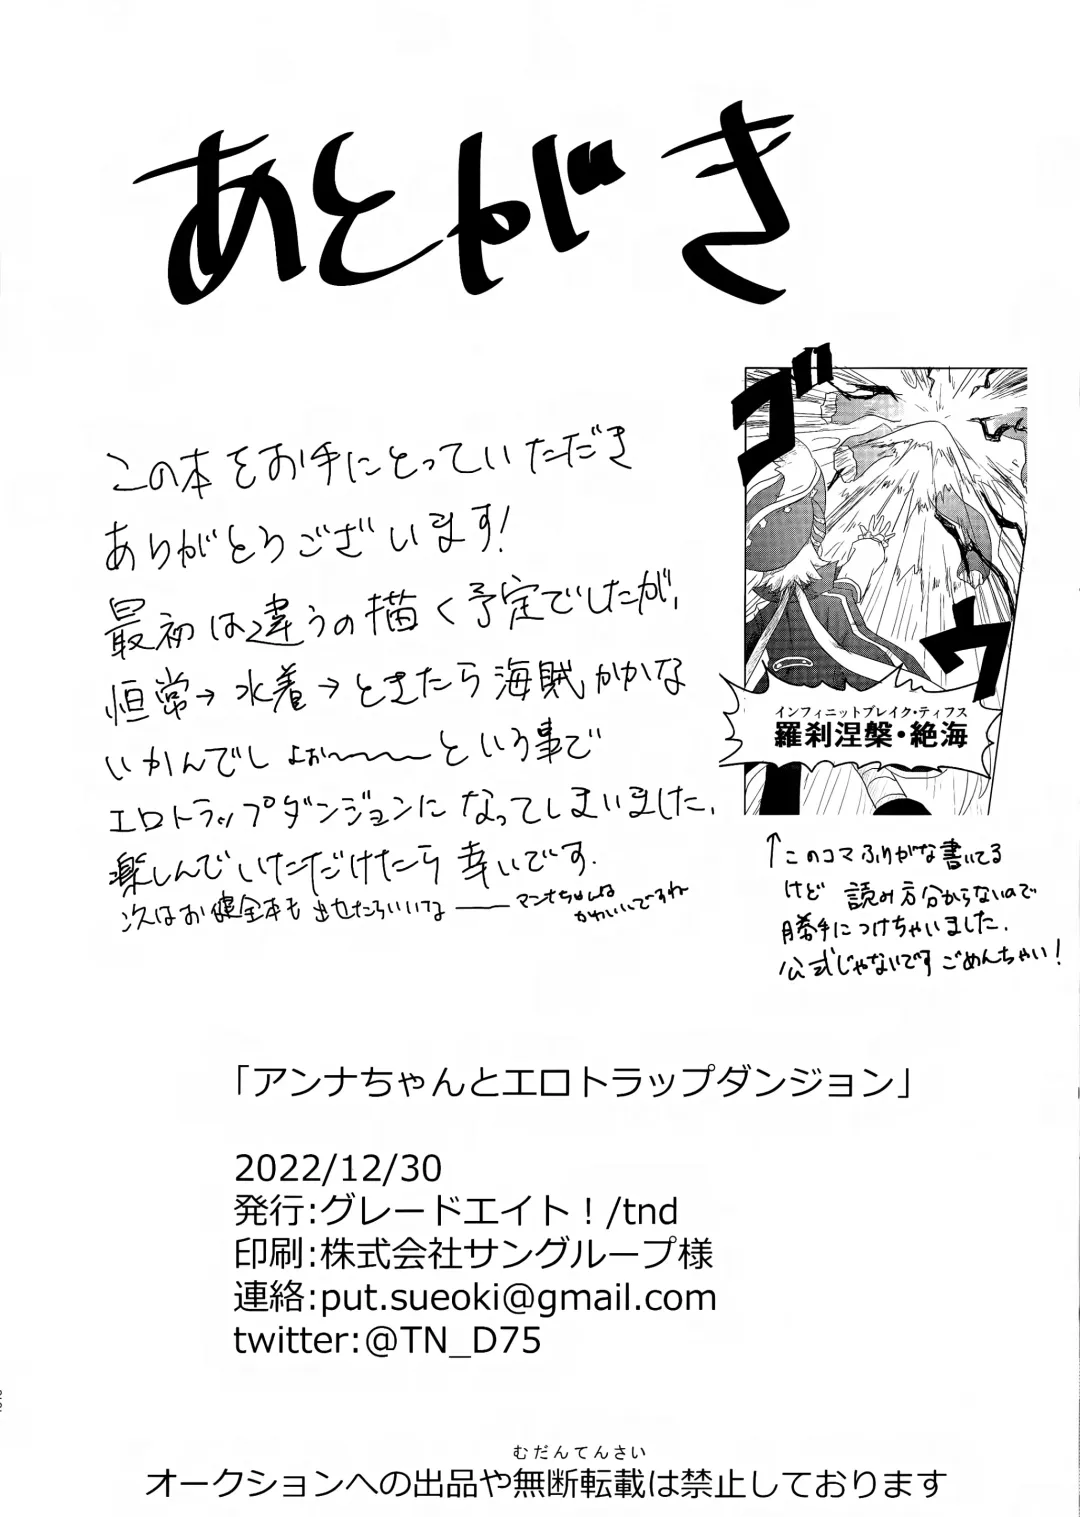 あとがき
この本をお手にとっていただき
ありがとうございます!
最初は違うの描く予定でしたが、
恒常→水着→ときたら海賊かかな
いかんでしょぉ〜〜〜という事で
エロトラップダンジョンになってしまいました、
楽しんでいただけたら幸いです.
次はお健全本も出せたらいいな――
アンナちゃんは
かわいいですね
ゴ
ウ
インフィニットブレイク・ティフス
羅刹涅槃・絶海
↑このコマふりがな書いてる
けど 読み方分からないので
勝手につけちゃいました.
公式じゃないです ごめんちゃい!
「アンナちゃんとエロトラップダンジョン」
2022/12/30
発行:グレードエイト！/tnd
印刷:株式会社サングループ様
連絡:put.sueoki@gmail.com
twitter:@TN_D75
むだんてんさい
オークションへの出品や無断転載は禁止しております